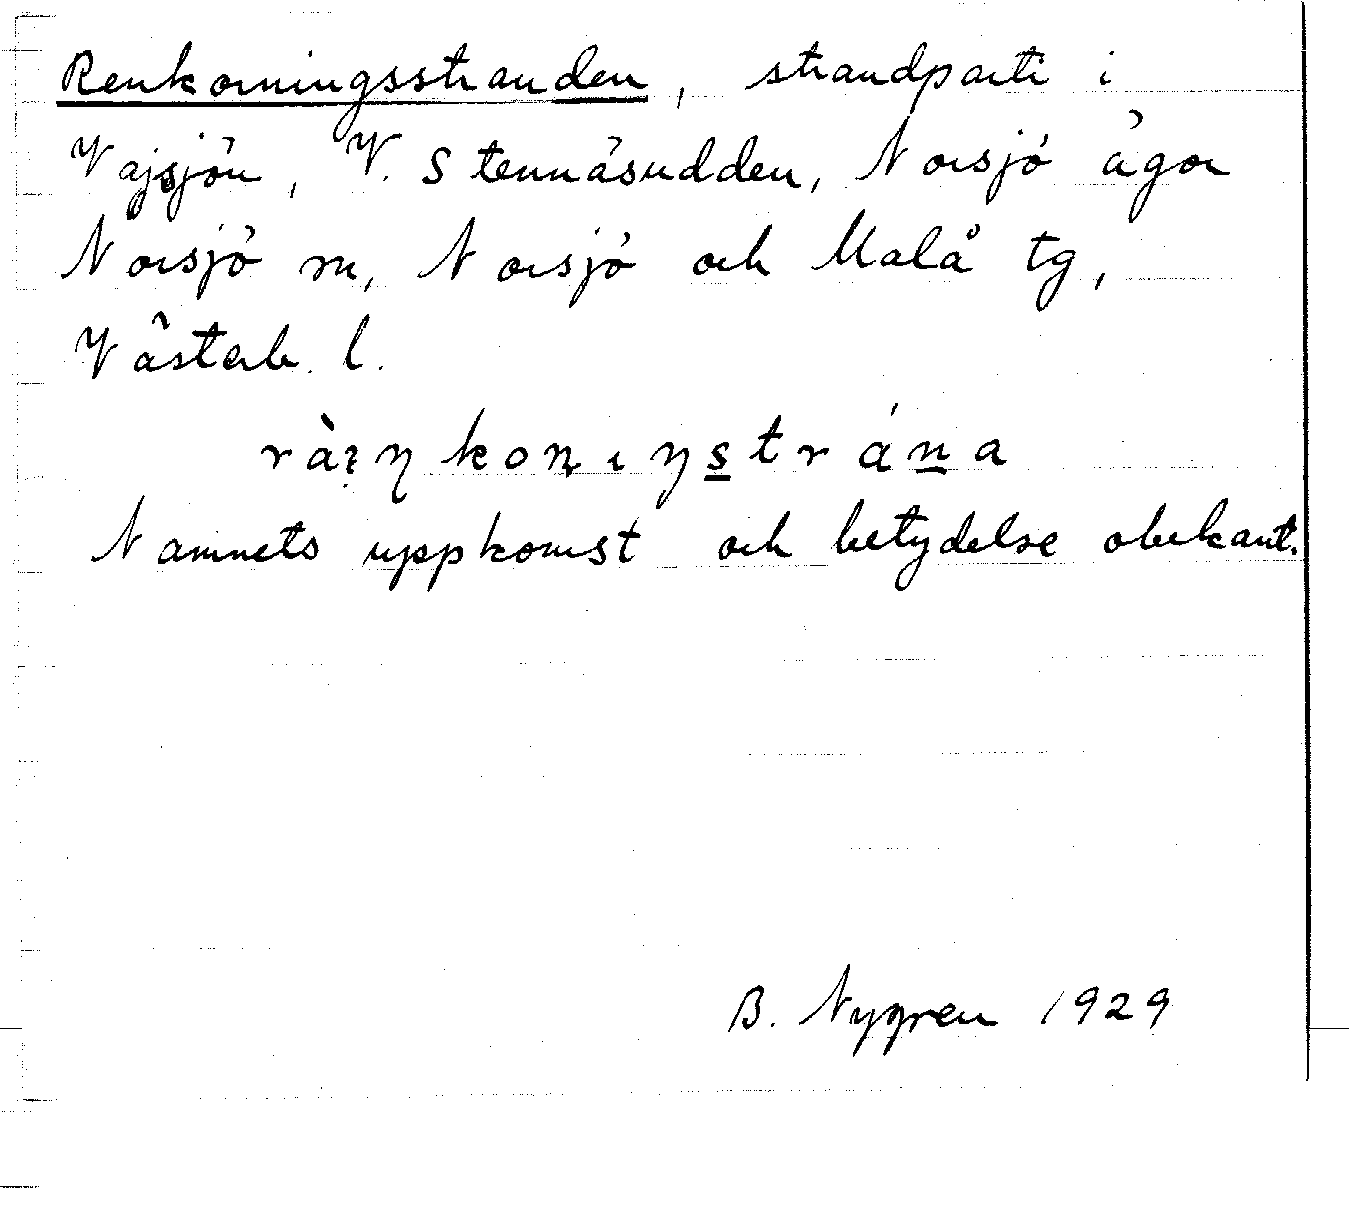 Renkorningsstranden, strandparti i
Vajsjön, V. Stennäsudden, Norsjö ägor
Norsjö sn, Norsjö och Malå tg,
Västerb. l.
Namnets uppkomst och betydelse obekant.
B. Nygren 1929